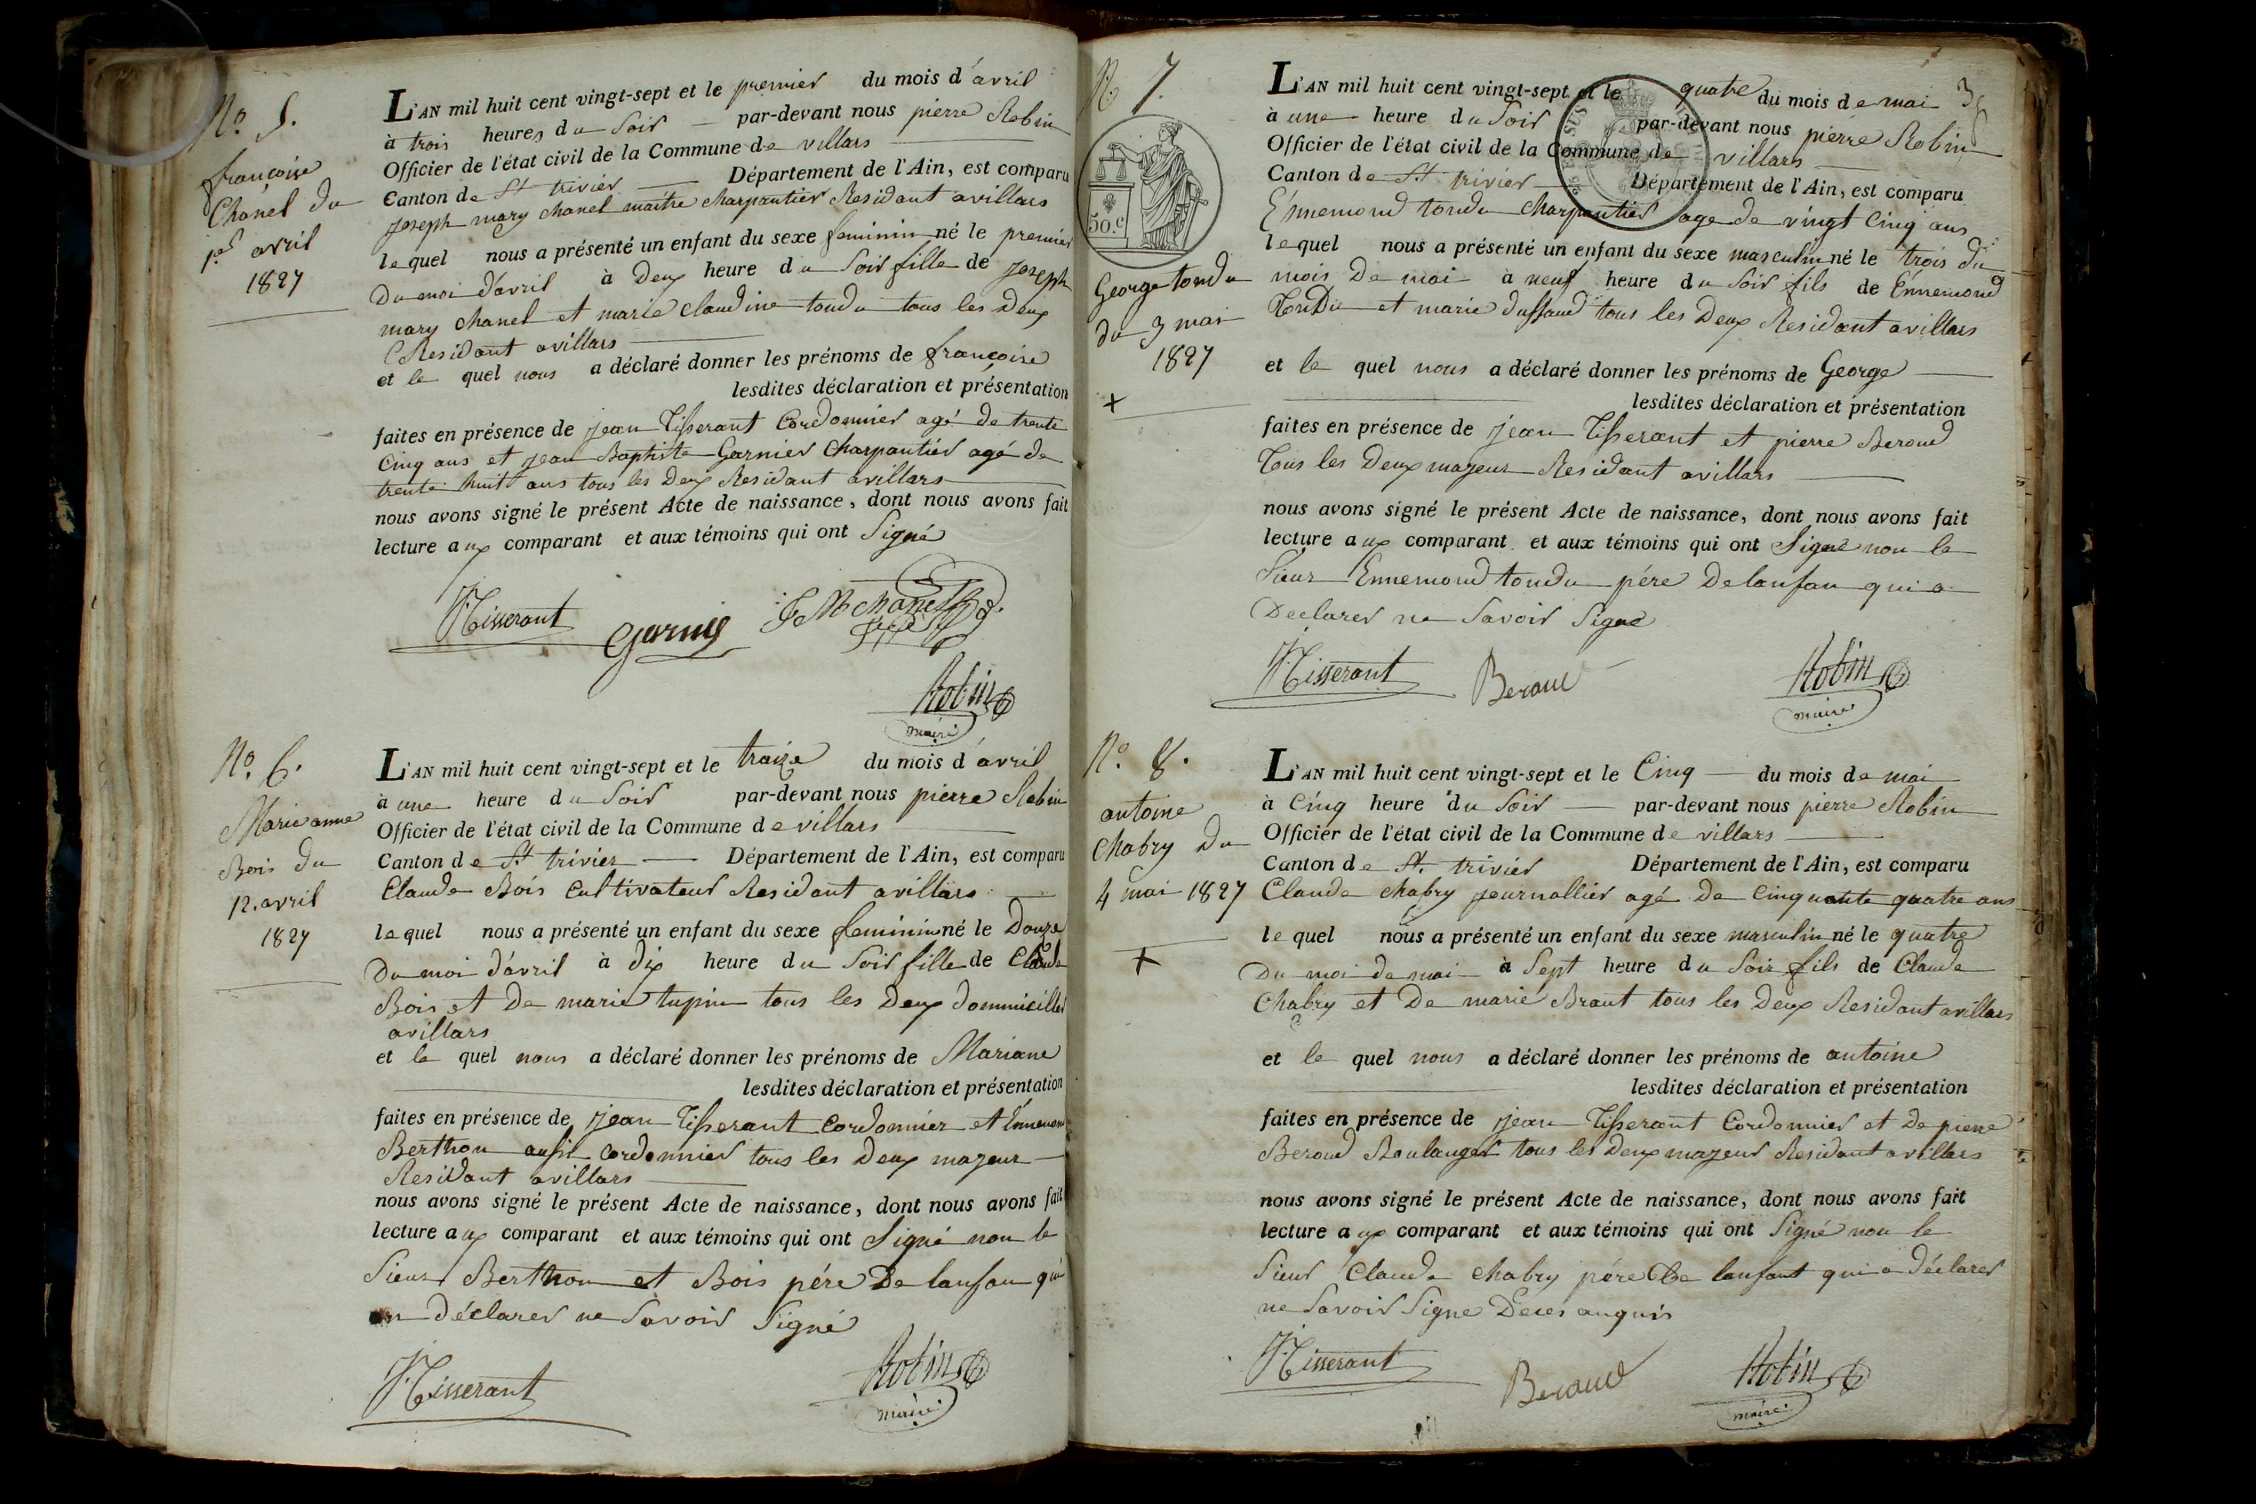 No. 5.
françoise
Chanel du
1er avril
1827
L'AN mil huit cent vingt-sept et le premier du mois d'avril
à trois heures du Soir par-devant nous pierre Robin
Officier de l'état civil de la Commune de villars
Canton de St trivier Département de l'Ain, est comparu
joseph mary chanel maitre charpantier Residant avillars
lequel nous a présenté un enfant du sexe feminin né le premier
Du moi d'avril à Deux heure du Soir fille de joseph
mary chanel et marie claudine tondu tous les Deux
Residant avillars
et le quel nous a déclaré donner les prénoms de françoise
lesdites déclaration et présentation
faites en présence de jean Tisserant Cordonnier agé de trente
Cinq ans et jean Baptiste Garnier Charpantier agé de
trente huit ans tous les Deux Residant avillars
nous avons signé le présent Acte de naissance, dont nous avons fait
lecture aux comparant et aux témoins qui ont Signé
Tisserant Garnier J M chanel
Robin
maire
No. 6.
Marie anne
Bois du
12. avril
1827
L'AN mil huit cent vingt-sept et le traize du mois d'avril
à une heure du Soir par-devant nous pierre Robin
Officier de l'état civil de la Commune de villars
Canton de St trivier Département de l'Ain, est comparu
Claude Bois Cultivateur Residant avillars
lequel nous a présenté un enfant du sexe feminin né le Douze
Du moi d'avril à dix heure du Soir fille de Claude
Bois et De marie tupin tous les Deux Dommicillés
avillars
et le quel nous a déclaré donner les prénoms de Mariane
lesdites déclaration et présentation
faites en présence de jean Tisserant Cordonnier et Ennemond
Berthon aussi Cordonnier tous les Deux majeur
Residant avillars
nous avons signé le présent Acte de naissance, dont nous avons fait
lecture aux comparant et aux témoins qui ont Signé non le
Sieur Berthon et Bois père De lanfan qui
on déclarer ne Savoir Signé
Tisserant Robin
maire
N. 7.
50.c
George tondu
du 3 mai
1827
L'AN mil huit cent vingt-sept et le quatre du mois de mai
à une heure du Soir par-devant nous pierre Robin
Officier de l'état civil de la Commune de villars
Canton de St trivier Département de l'Ain, est comparu
Ennemond tondu charpantier age de vingt Cinq ans
lequel nous a présenté un enfant du sexe masculin né le trois du
mois De mai à neuf heure du Soir fils de Ennemond
TonDu et marie Dussaud tous les Deux Residant avillars
et le quel nous a déclaré donner les prénoms de George
lesdites déclaration et présentation
faites en présence de jean Tisserant et pierre Beroud
Tous les Deux majeur Residant avillars
nous avons signé le présent Acte de naissance, dont nous avons fait
lecture aux comparant et aux témoins qui ont Signé non le
Sieur Ennemond tondu père De lanfan qui a
Declarer ne Savoir Signé
Tisserant Beroud Robin
maire
No. 8.
antoine
Chabry Du
4 mai 1827
L'AN mil huit cent vingt-sept et le Cinq du mois de mai
à Cinq heure du Soir par-devant nous pierre Robin
Officier de l'état civil de la Commune de villars
Canton de St. trivier Département de l'Ain, est comparu
Claude chabry journallier agé De Cinquante quatre ans
lequel nous a présenté un enfant du sexe masculin né le quatre
Du moi de mai à Sept heure du Soir fils de Claude
Chabry et De marie Braut tous les Deux Residant avillars
et le quel nous a déclaré donner les prénoms de antoine
lesdites déclaration et présentation
faites en présence de jean Tisserant Cordonnier et De pierre
Beroud Boulanger tous les Deux majeur Residant avillars
nous avons signé le présent Acte de naissance, dont nous avons fait
lecture aux comparant et aux témoins qui ont Signé non le
Sieur Claude chabry père De lanfant qui a déclarer
ne Savoir Signe De ces anquis
Tisserant Beroud Robin
maire